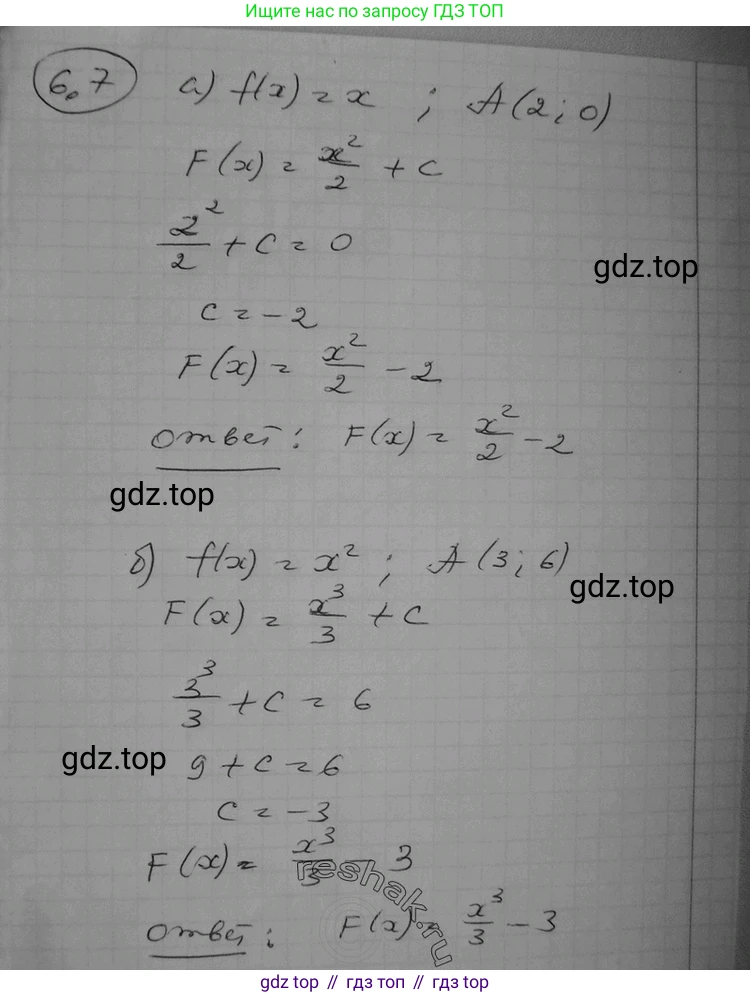 Ищите нас по запросу ГДЗ ТОП
6.7 а) f(x) = x ; A(2; 0)
F(x) = x²/2 + C
2²/2 + C = 0
gdz.top
C = -2
F(x) = x²/2 - 2
Ответ: F(x) = x²/2 - 2
gdz.top
б) f(x) = x² ; A(3; 6)
gdz.top
F(x) = x³/3 + C
3³/3 + C = 6
gdz.top
9 + C = 6
C = -3
F(x) = x³/3 - 3
reshak.ru
Ответ: F(x) = x³/3 - 3
gdz top // гдз топ // gdz.top